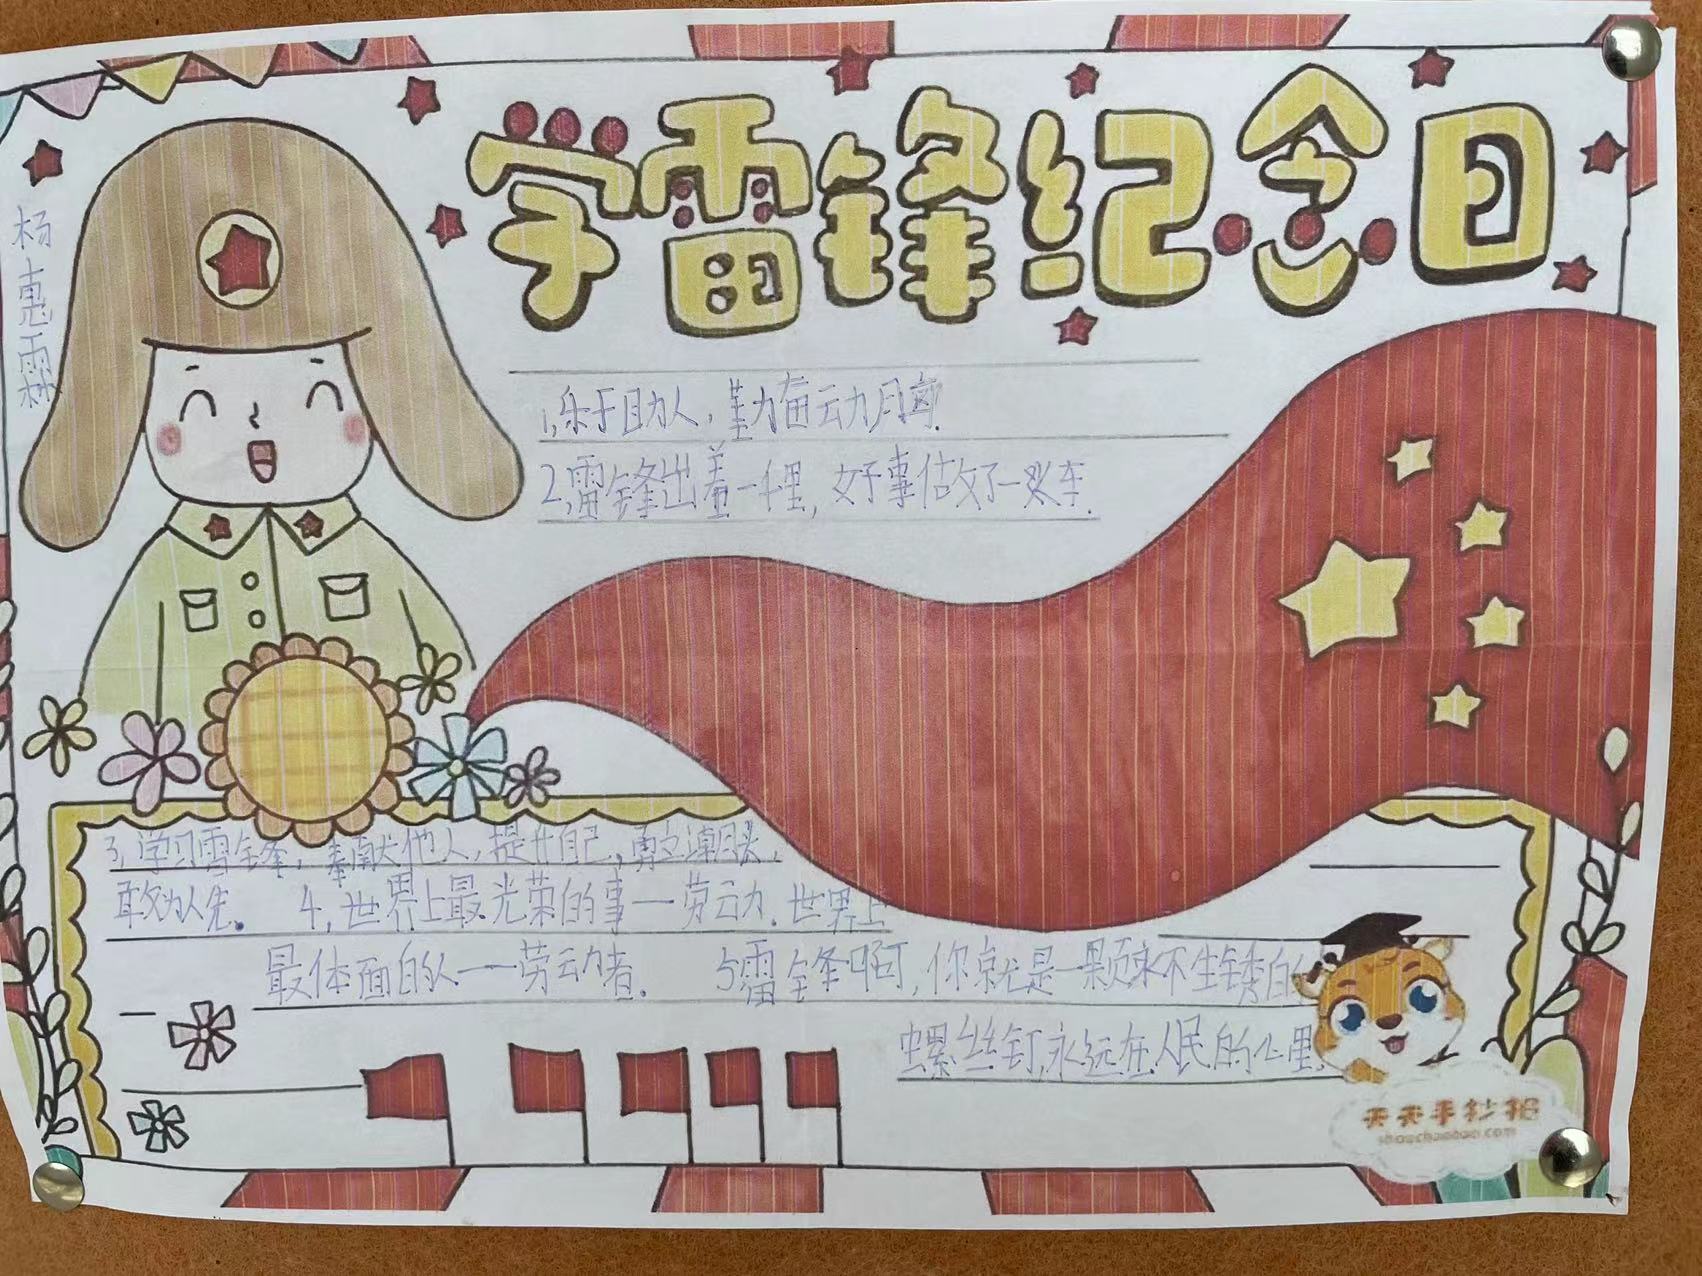 学雷锋纪念日
杨惠霖
1,乐于助人,勤奋动脑.
2,雷锋出差一千里,好事做了一火车.
3,学习雷锋,奉献他人,提升自己,勇立潮头,
敢为人先。 4,世界上最光荣的事一劳动.世界上
最体面的人一劳动者. 5雷锋啊,你就是一颗永不生锈的
螺丝钉,永远在人民的心里.
天天手抄报
shouchaobao.com